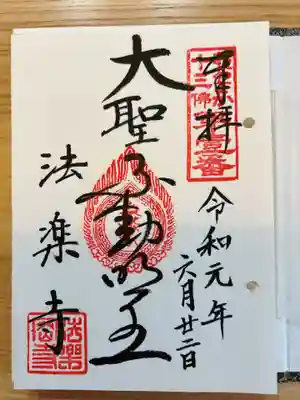 奉拝
令和元年
六月廿二日
大聖不動明王
法楽寺